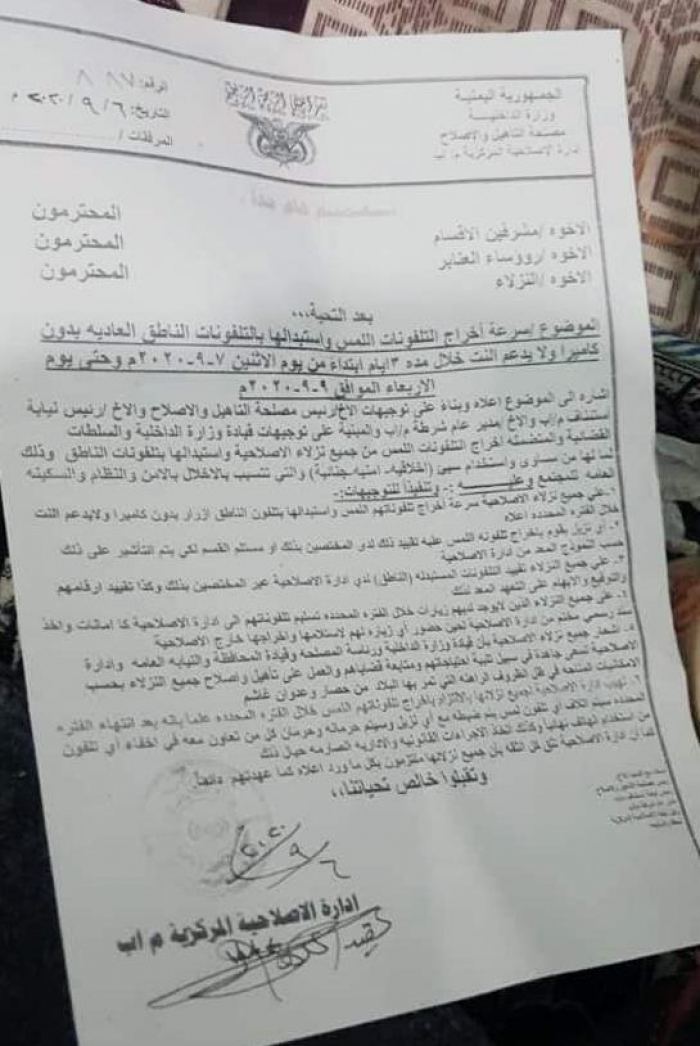 الجمهورية اليمنية
وزارة الداخلية
مصلحة التأهيل والإصلاح
إدارة الإصلاحية المركزية م/اب
الرقم:
التاريخ: ٢٠٢٠/٩/٦م
المرفقات /
الاخوه /مشرفين الاقسام المحترمون
الاخوه /رووساء العنابر المحترمون
الاخوه /النزلاء المحترمون
بعد التحية،،،
الموضوع /سرعة أخراج التلفونات اللمس وإستبدالها بالتلفونات الناطق العاديه بدون
كاميرا ولا يدعم النت خلال مده ٣ايام ابتداء من يوم الاثنين ٧-٩-٢٠٢٠م وحتى يوم
الاربعاء الموافق ٩-٩-٢٠٢٠م
اشاره الى الموضوع اعلاه وبناء على توجيهات الاخ/رئيس مصلحة التاهيل والاصلاح والاخ /رئيس نيابة
استئناف م/اب والاخ /مدير عام شرطة م/اب والمبنية على توجيهات قيادة وزارة الداخلية والسلطات
القضائية والمتضمنه اخراج التلفونات اللمس من جميع نزلاء الاصلاحية واستبدالها بتلفونات الناطق وذلك
لما لها من مساوى واستخدام سيئ (اخلاقيه- امنيه-جنانية) والتي تتسبب بالاخلال بالامن والنظام والسكينه
العامه للمجتمع وعليــــــــه :- وتنفيذا للتوجيهات:-
١-على جميع نزلاء الاصلاحية سرعة اخراج تلفوناتهم اللمس واستبدالها بتلفون الناطق ازرار بدون كاميرا ولايدعم النت
خلال الفتره المحدده اعلاه
٢- أي نزيل يقوم باخراج تلفونه اللمس عليه تقييد ذلك لدى المختصين بذلك او مستلم القسم لكي يتم التأشير على ذلك
حسب النموذج المعد من ادارة الاصلاحية
٣- على جميع النزلاء تقييد التلفونات المستبدله (الناطق) لدي ادارة الاصلاحية عبر المختصين بذلك وكذا تقييد ارقامهم
والتوقيع والابهام على التعهد المعد لذلك
٤- على جميع النزلاء الذين لايوجد لديهم زيارات خلال الفتره المحدده تسليم تلفوناتهم الى ادارة الاصلاحية كا امانات واخذ
سند رسمي مختم من ادارة الاصلاحية لحين حضور أي زياره لهم لاستلامها واخراجها خارج الاصلاحية
٥- اشعار جميع نزلاء الاصلاحية بأن قيادة وزارة الداخلية ورئاسة المصلحه وقيادة المحافظة والنيابه العامه وادارة
الاصلاحية تسعى جاهدة في سبيل تلبية احتياجاتهم ومتابعة قضاياهم والعمل على تأهيل وإصلاح جميع النزلاء بحسب
الامكانيات المتاحه في ظل الظروف الراهنه التي تمر بها البلاد من حصار وعدوان غاشم
٦- تهيب ادارة الاصلاحية لجميع نزلائها بالالتزام باخراج تلفوناتهم اللمس خلال الفتره المحدده علما بانه بعد انتهاء الفتره
المحدده سيتم اتلاف أي تلفون لمس يتم ضبطه مع أي نزيل وسيتم حرمانه وحرمان كل من تعاون معه في اخفاء أي تلفون
من استخدام الهاتف نهائيا وكذلك اتخاذ الاجراءات القانونيه والاداريه الصارمه حيال ذلك
كما أن ادارة الاصلاحية تثق كل الثقه بأن جميع نزلائها ملتزمون بكل ما ورد اعلاه كما عهدتهم دائما.
وتقبلوا خالص تحياتنا،،
٢٠٢٠/٩/٦
ادارة الاصلاحية المركزية م اب